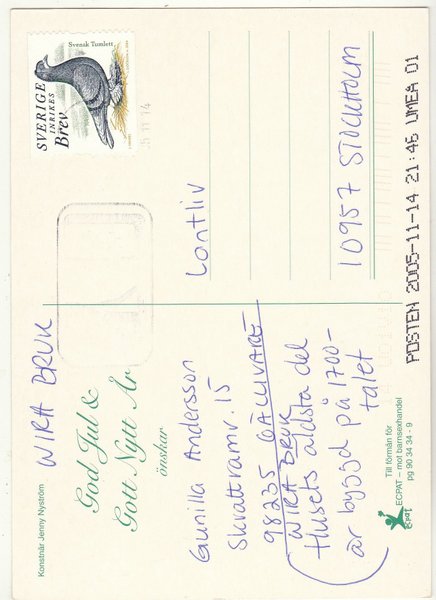 SVERIGE
INRIKES
Brev
Svensk Tumlett
POSTEN 2005-11-14 21:46 UMEA 01
WIRA BRUK
God Jul &
Gott Nytt År
önskar
Konstnär Jenny Nyström
Gunilla Andersson
Skvattramv. 15
98235 GÄLLIVARE
(WIRA BRUK
Husets äldsta del
är byggd på 1700-
talet
Lantliv
10957 STOCKHOLM
Till förmån för
ECPAT – mot barnsexhandel
pg 90 34 34 - 9
ecpat